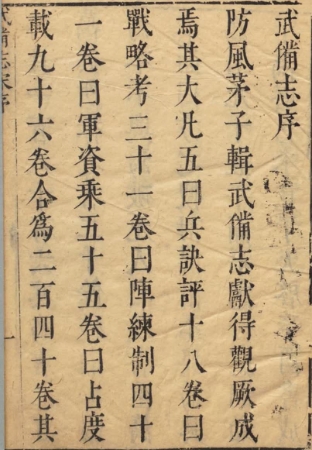 武備志序
防風茅子輯武備志獻得觀厥成
焉其大凡五曰兵訣評十八卷曰
戰略考三十一卷曰陣練制四十
一卷曰軍資乘五十五卷曰占度
載九十六卷合為二百四十卷其
武備志宋序
一